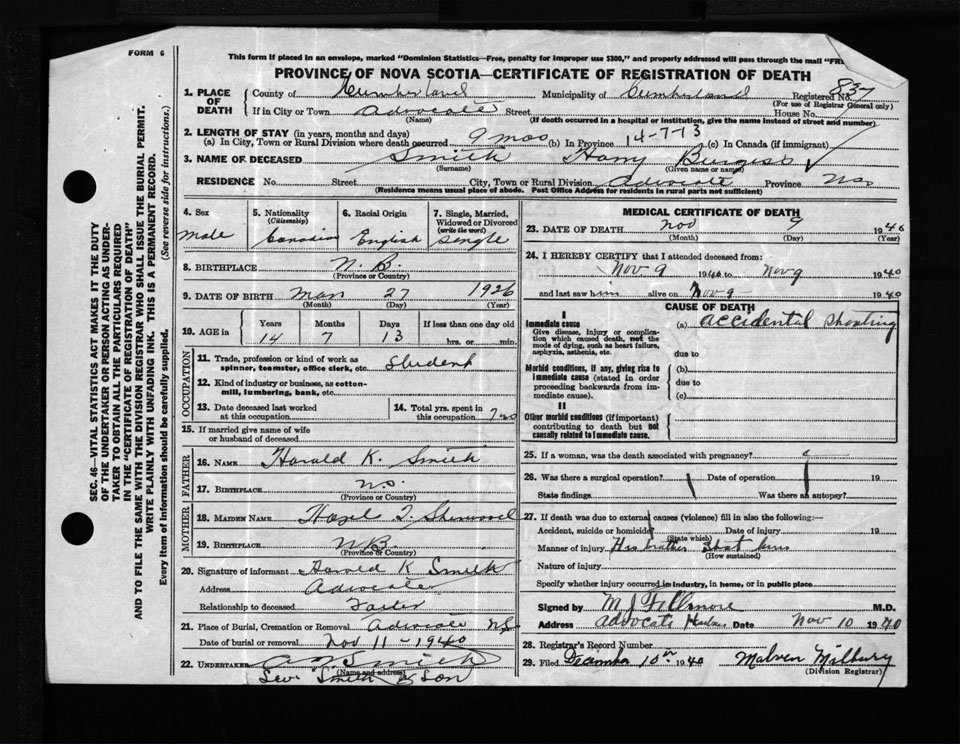 FORM 6
This form if placed in an envelope, marked "Dominion Statistics—Free, penalty for improper use $300," and properly addressed will pass through the mail "FR
PROVINCE OF NOVA SCOTIA—CERTIFICATE OF REGISTRATION OF DEATH
SEC. 46—VITAL STATISTICS ACT MAKES IT THE DUTY
OF THE UNDERTAKER OR PERSON ACTING AS UNDER-
TAKER TO OBTAIN ALL THE PARTICULARS REQUIRED
IN THE "CERTIFICATE OF REGISTRATION OF DEATH"
AND TO FILE THE SAME WITH THE DIVISION REGISTRAR WHO SHALL ISSUE THE BURIAL PERMIT.
WRITE PLAINLY WITH UNFADING INK. THIS IS A PERMANENT RECORD.
Every item of information should be carefully supplied. (See reverse side for instructions.)
1. PLACE OF DEATH County of Cumberland Municipality of Cumberland Registered No. 837
(For use of Registrar General only)
If in City or Town Advocate Street House No.
(Name) (If death occurred in a hospital or institution, give the name instead of street and number)
2. LENGTH OF STAY (in years, months and days)
(a) In City, Town or Rural Division where death occurred 9 mos (b) In Province 14-7-13 (c) In Canada (if immigrant)
3. NAME OF DECEASED Smith Harry Burgess
(Surname) (Given name or names)
RESIDENCE No. Street City, Town or Rural Division Advocate Province NS
(Residence means usual place of abode. Post Office Address for residents in rural parts not sufficient)
4. Sex 5. Nationality 6. Racial Origin 7. Single, Married,
(Citizenship) Widowed or Divorced
(write the word)
male Canadian English single
8. BIRTHPLACE N. B.
(Province or Country)
9. DATE OF BIRTH Mar 27 1926
(Month) (Day) (Year)
10. AGE in Years Months Days If less than one day old
14 7 13 hrs. or min.
OCCUPATION
11. Trade, profession or kind of work as
spinner, teamster, office clerk, etc. Student
12. Kind of industry or business, as cotton-
mill, lumbering, bank, etc.
13. Date deceased last worked
at this occupation
14. Total yrs. spent in
this occupation
15. If married give name of wife
or husband of deceased
FATHER
16. NAME Harold K. Smith
17. BIRTHPLACE NS.
(Province or Country)
MOTHER
18. MAIDEN NAME Hazel I. Sherwood
19. BIRTHPLACE NB
(Province or Country)
20. Signature of informant Harold K Smith
Address Advocate
Relationship to deceased Father
21. Place of Burial, Cremation or Removal Advocate NS
Date of burial or removal Nov 11-1940
22. UNDERTAKER Smith
(Name and address)
Smith & Son
MEDICAL CERTIFICATE OF DEATH
23. DATE OF DEATH Nov 9 1940
(Month) (Day) (Year)
24. I HEREBY CERTIFY that I attended deceased from:
Nov 9 1940 to Nov 9 1940
and last saw him alive on Nov 9- 1940
CAUSE OF DEATH
I
Immediate cause
Give disease, injury or complica-
tion which caused death, not the
mode of dying, such as heart failure,
asphyxia, asthenia, etc.
(a) accidental shooting
due to
Morbid conditions, if any, giving rise to
immediate cause (stated in order
proceeding backwards from im-
mediate cause).
(b)
due to
(c)
II
Other morbid conditions (if important)
contributing to death but not
causally related to immediate cause.
25. If a woman, was the death associated with pregnancy?
26. Was there a surgical operation? Date of operation 19
State findings Was there an autopsy?
27. If death was due to external causes (violence) fill in also the following:—
Accident, suicide or homicide? Date of injury 19
(State which)
Manner of injury His brother shot him
(How sustained)
Nature of injury
Specify whether injury occurred in industry, in home, or in public place
Signed by M J Fillmore M.D.
Address Advocate Date Nov 10 1940
28. Registrar's Record Number
29. Filed December 10th 1940 Malven Milbury
(Division Registrar)